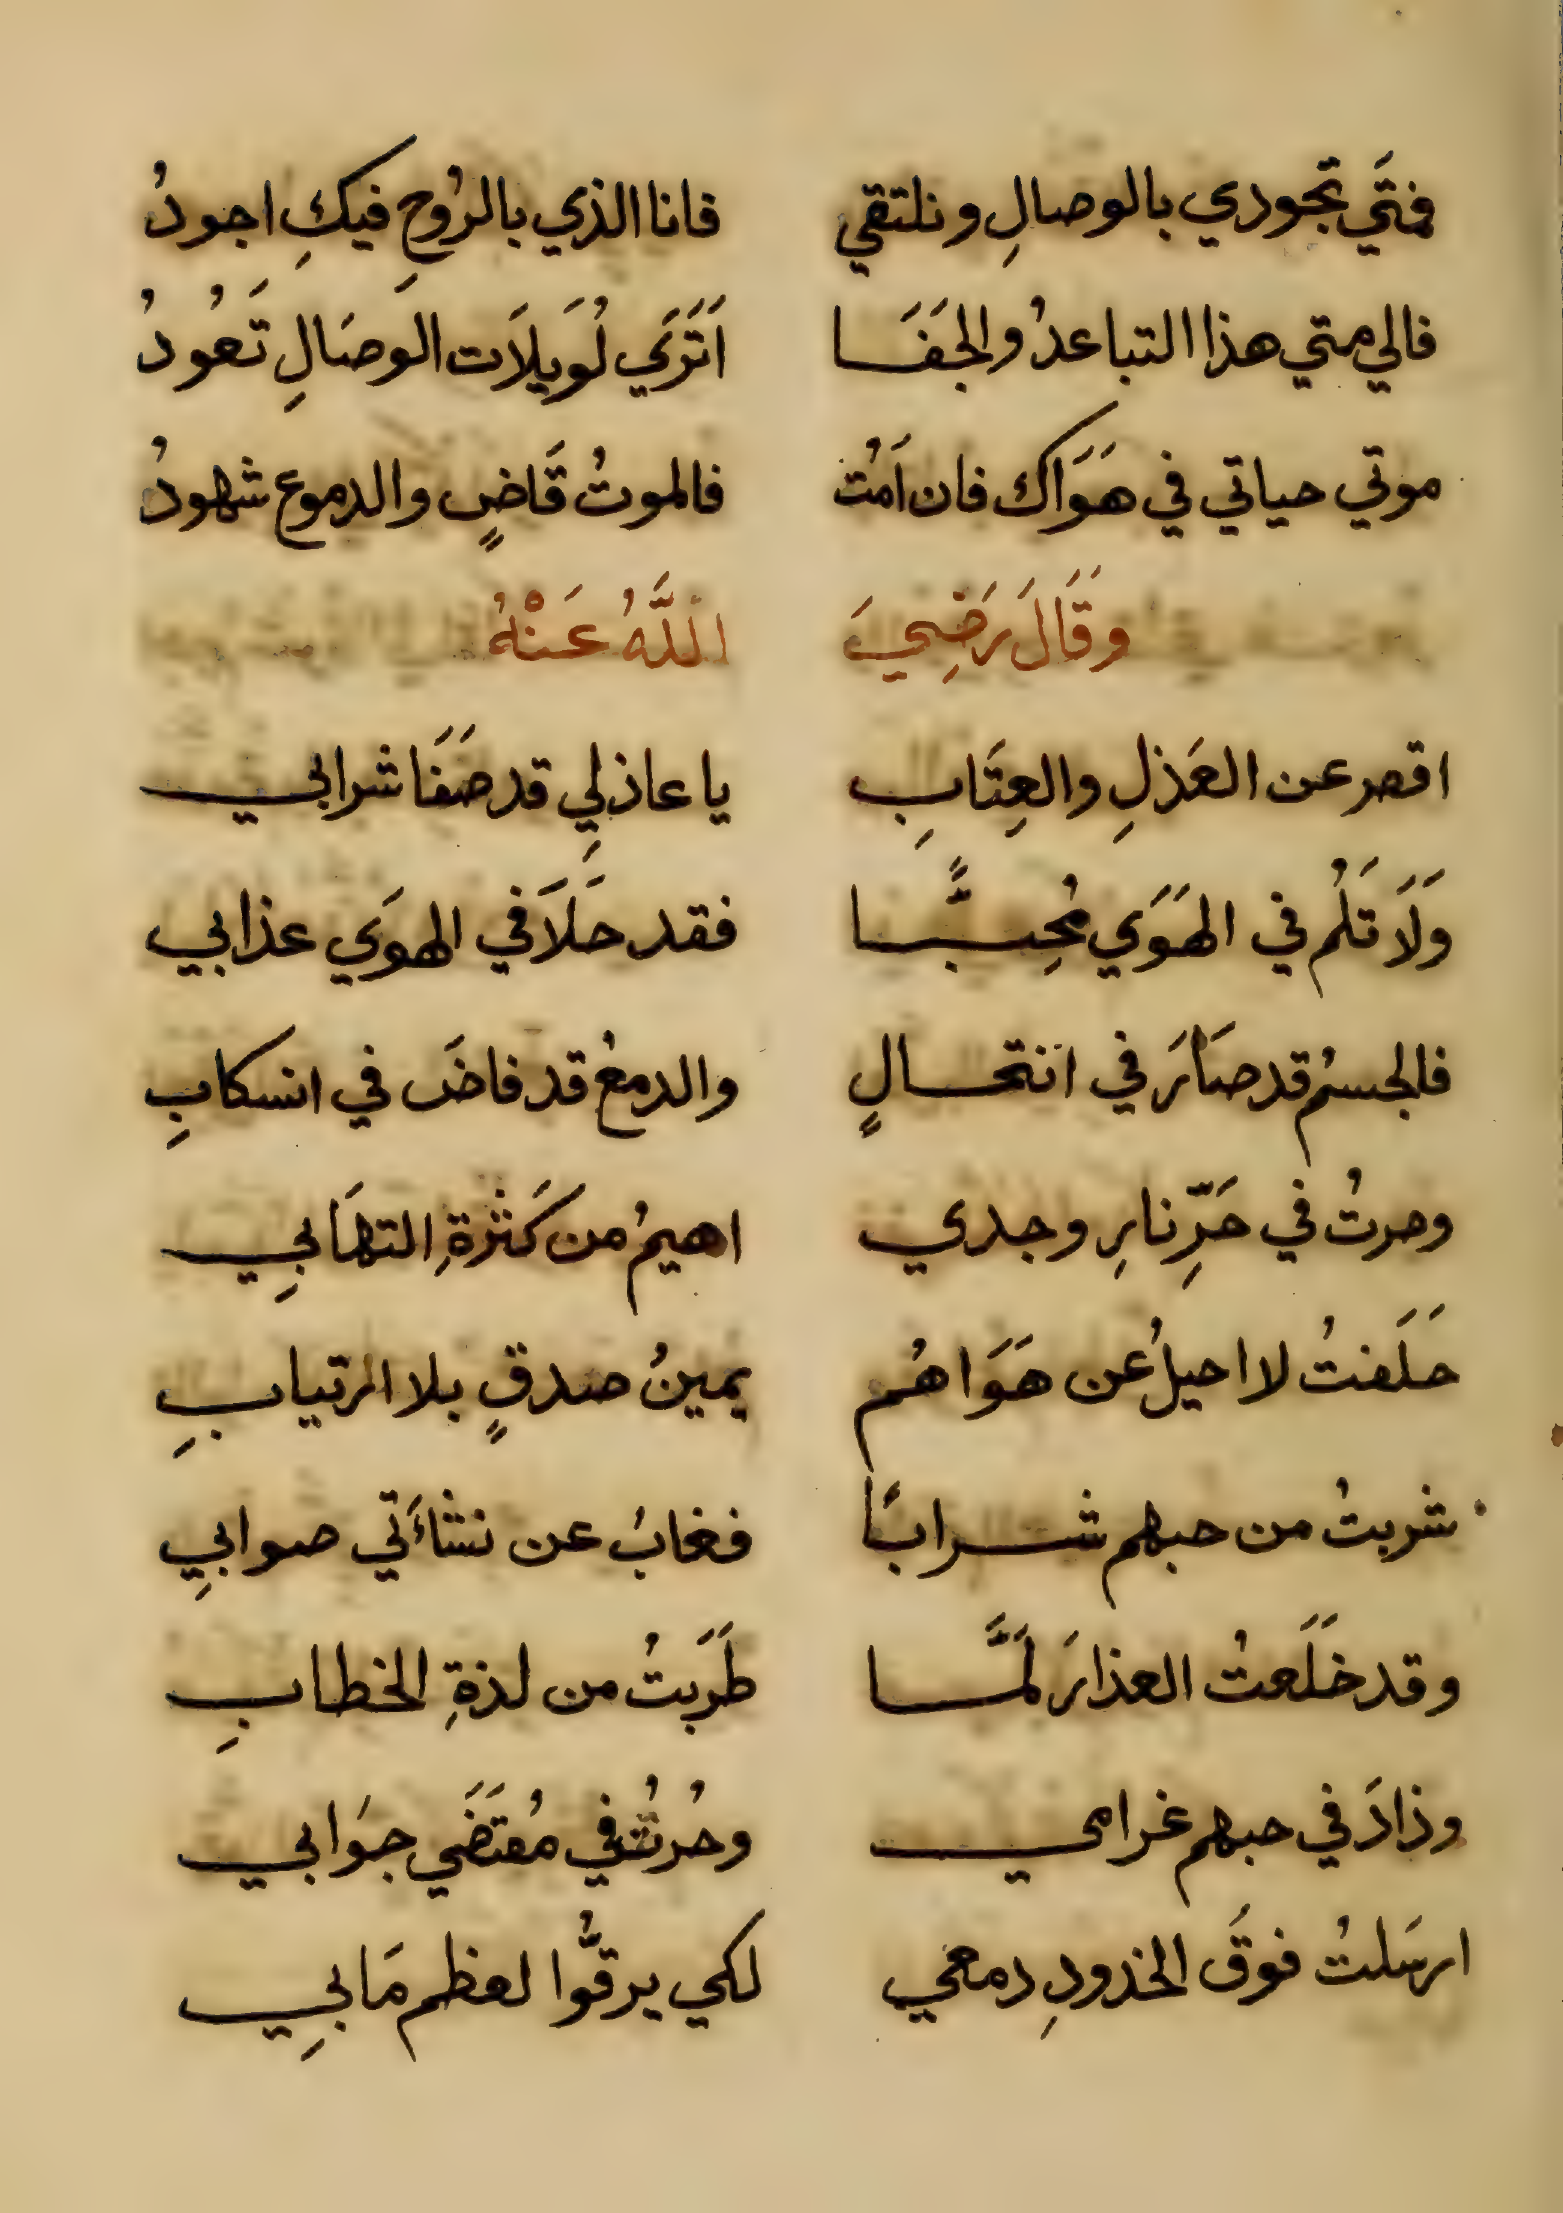 فمتَي تجودي بالوصالِ ونلتقي فانا الذي بالرُوحِ فيكِ اجودُ
فالي متي هذا التباعدُ والجَفَا اَتَرَي لُوَيلَات الوصَالِ تَعُودُ
موتي حياتي في هَوَاك فان اَمُت فالموتُ قَاضٍ والدموع شهودُ
وَقَالَ رَضِيَ اللَّهُ عَنْهُ
اقصر عن العَذلِ والعِتَابِ يا عاذلِي قد صَفَا شرابي
وَلَا تَلُم في الهَوَي مُحِبًّا فقد حَلَا في الهوَي عذابي
فالجسمُ قد صَارَ في انتحالٍ والدمعُ قد فاضَ في انسكابِ
وصرتُ في حَرِّ نارِ وجدي اهيمُ من كَثرةِ التهَابِي
حَلَفتُ لا احيلُ عن هَوَاهُم يمينُ صدقٍ بلا ارتيابِ
شربتُ من حبهم شرابًا فغابُ عن نشاَتي صوابيِ
وقد خَلَعتُ العذارَ لَمَّا طَرَبتُ من لذةِ الخطابِ
وزادَ في حبهم غرامي وحُرتُ في مُقتَضَي جوَابي
ارسَلتُ فوقَ الخدودِ دمعي لكي يرقُّوا لعظم مَابيِ